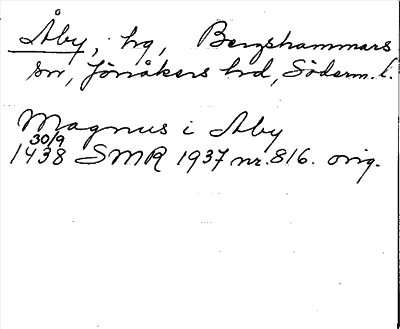 Åby, hg, Bergshammars
sn, Jönåkers hd, Söderm. l.
Magnus i Aby
30/9
1438 SMR 1937 nr. 816. orig.